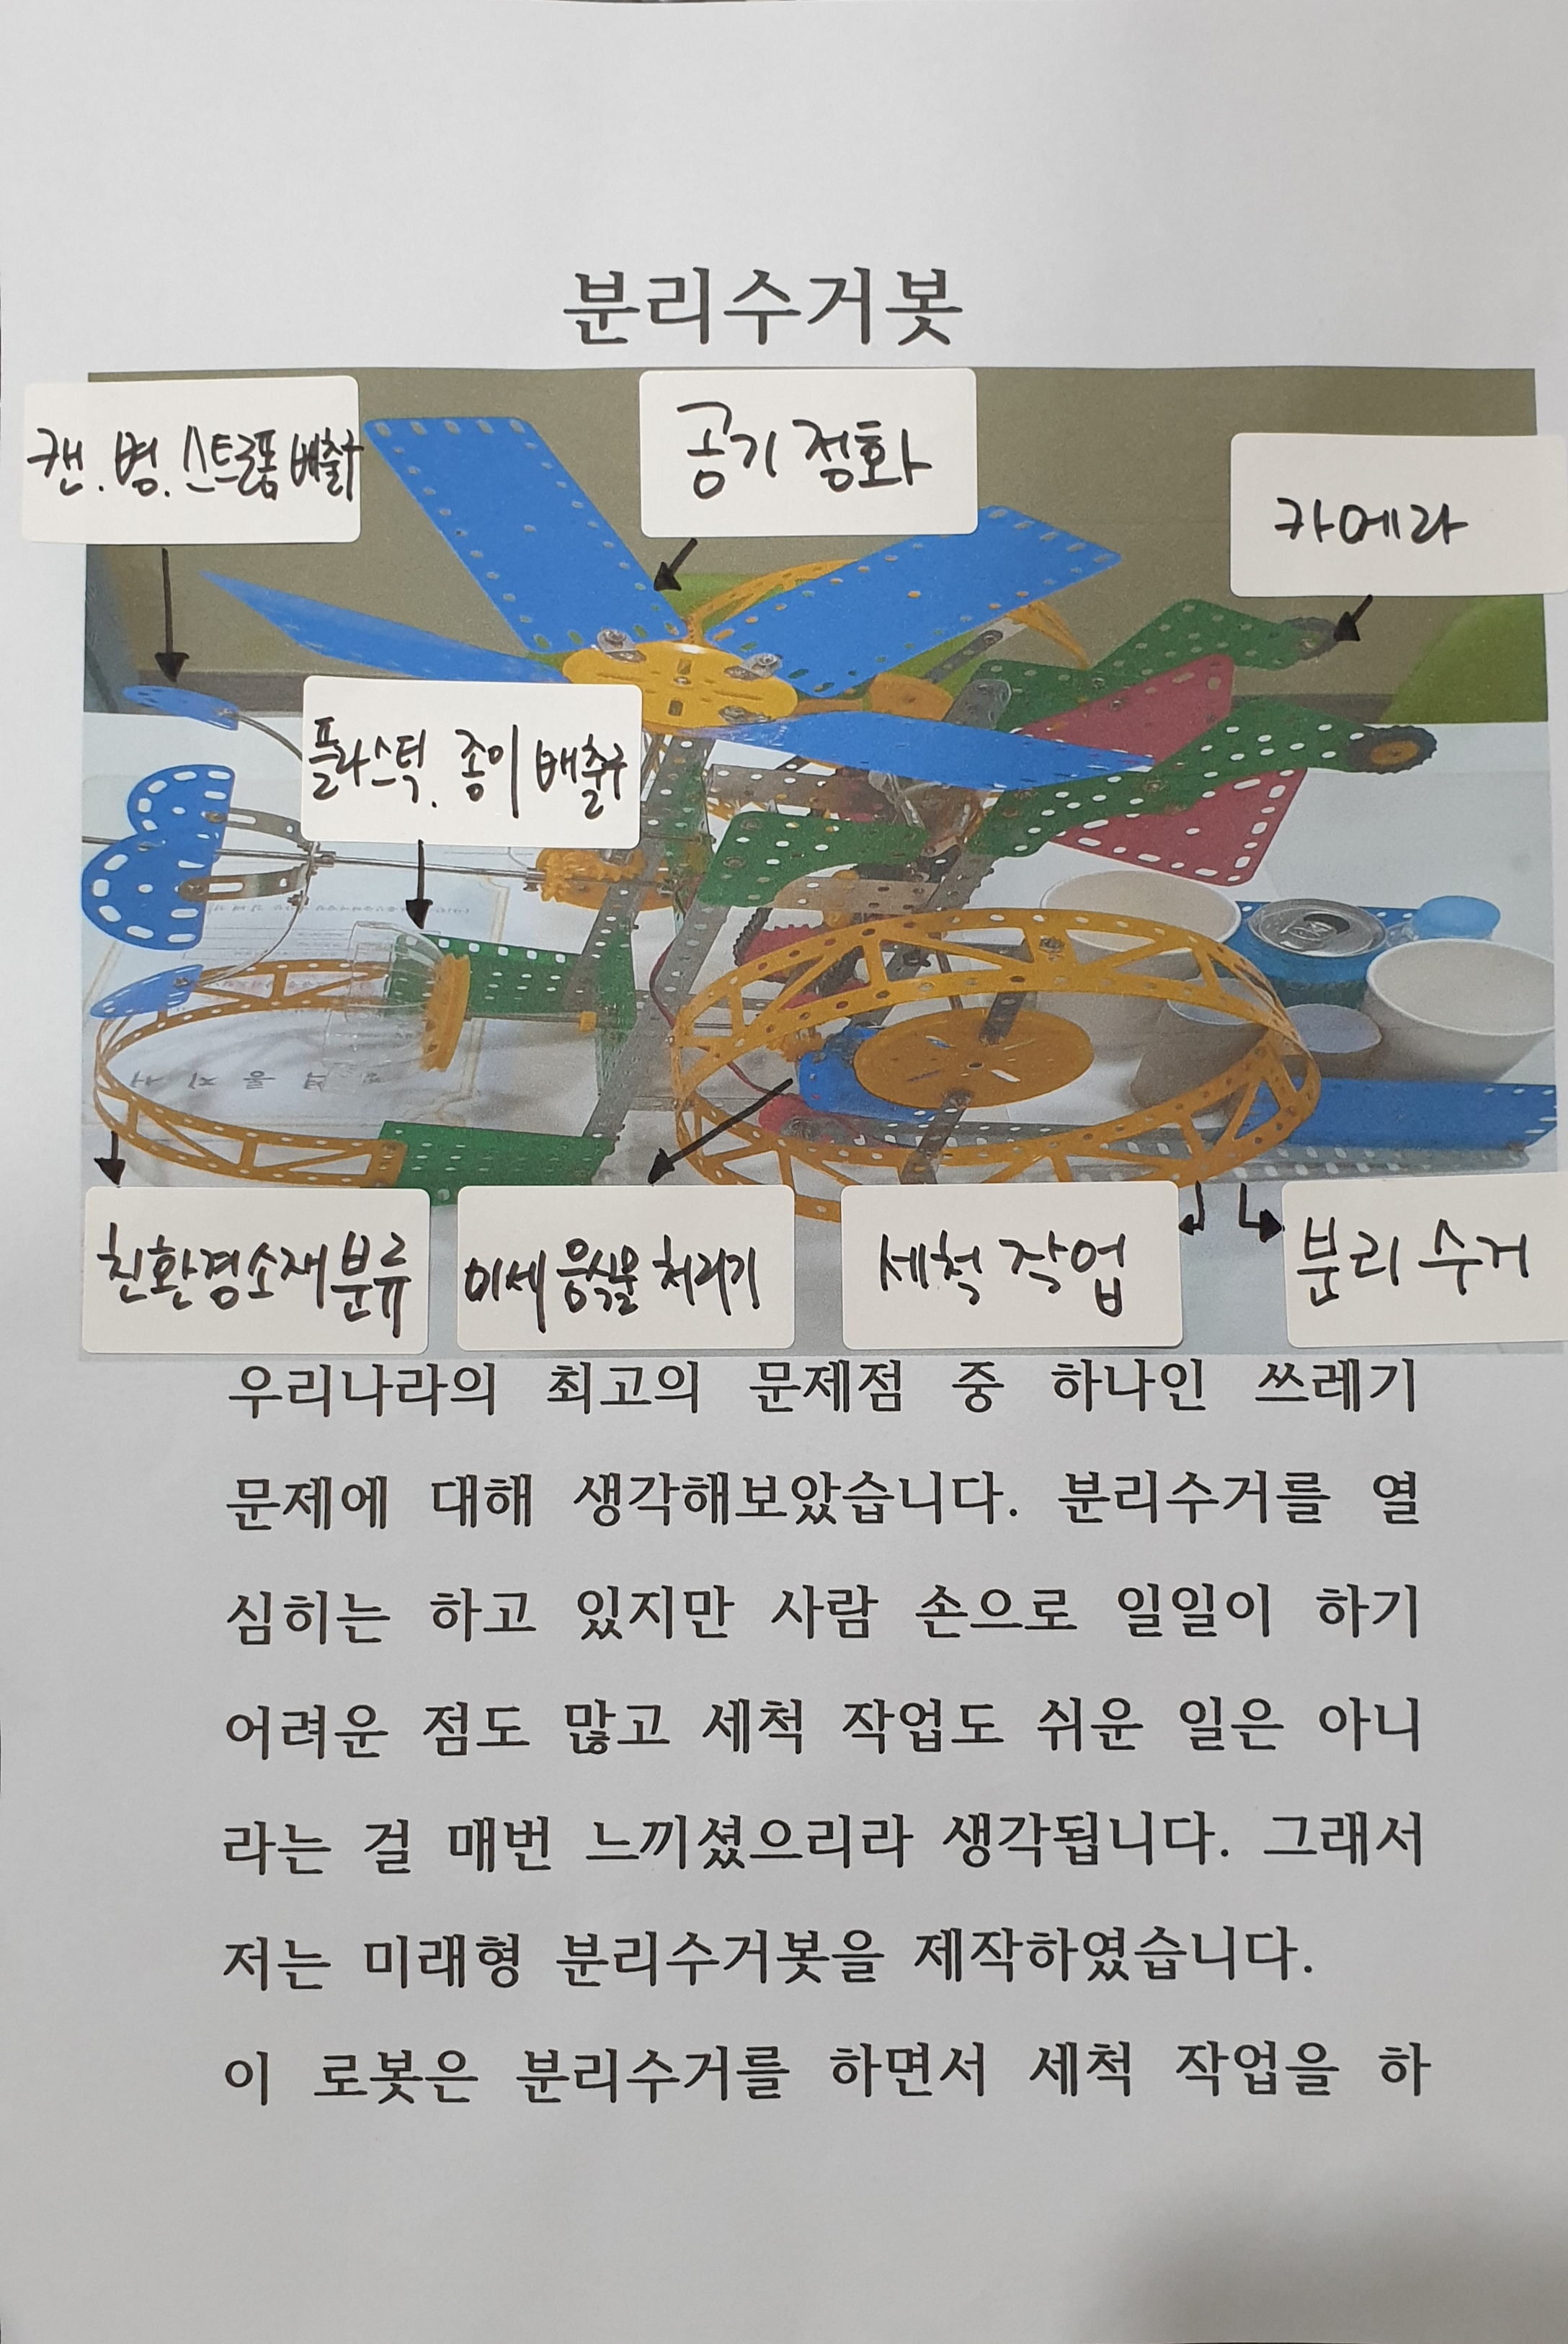 분리수거봇
캔.병.스트로폼 배출구
공기 정화
카메라
플라스틱. 종이 배출구
친환경소재 분류
미세 음식물 처리기
세척 작업
분리 수거
우리나라의 최고의 문제점 중 하나인 쓰레기
문제에 대해 생각해보았습니다. 분리수거를 열
심히는 하고 있지만 사람 손으로 일일이 하기
어려운 점도 많고 세척 작업도 쉬운 일은 아니
라는 걸 매번 느끼셨으리라 생각됩니다. 그래서
저는 미래형 분리수거봇을 제작하였습니다.
이 로봇은 분리수거를 하면서 세척 작업을 하